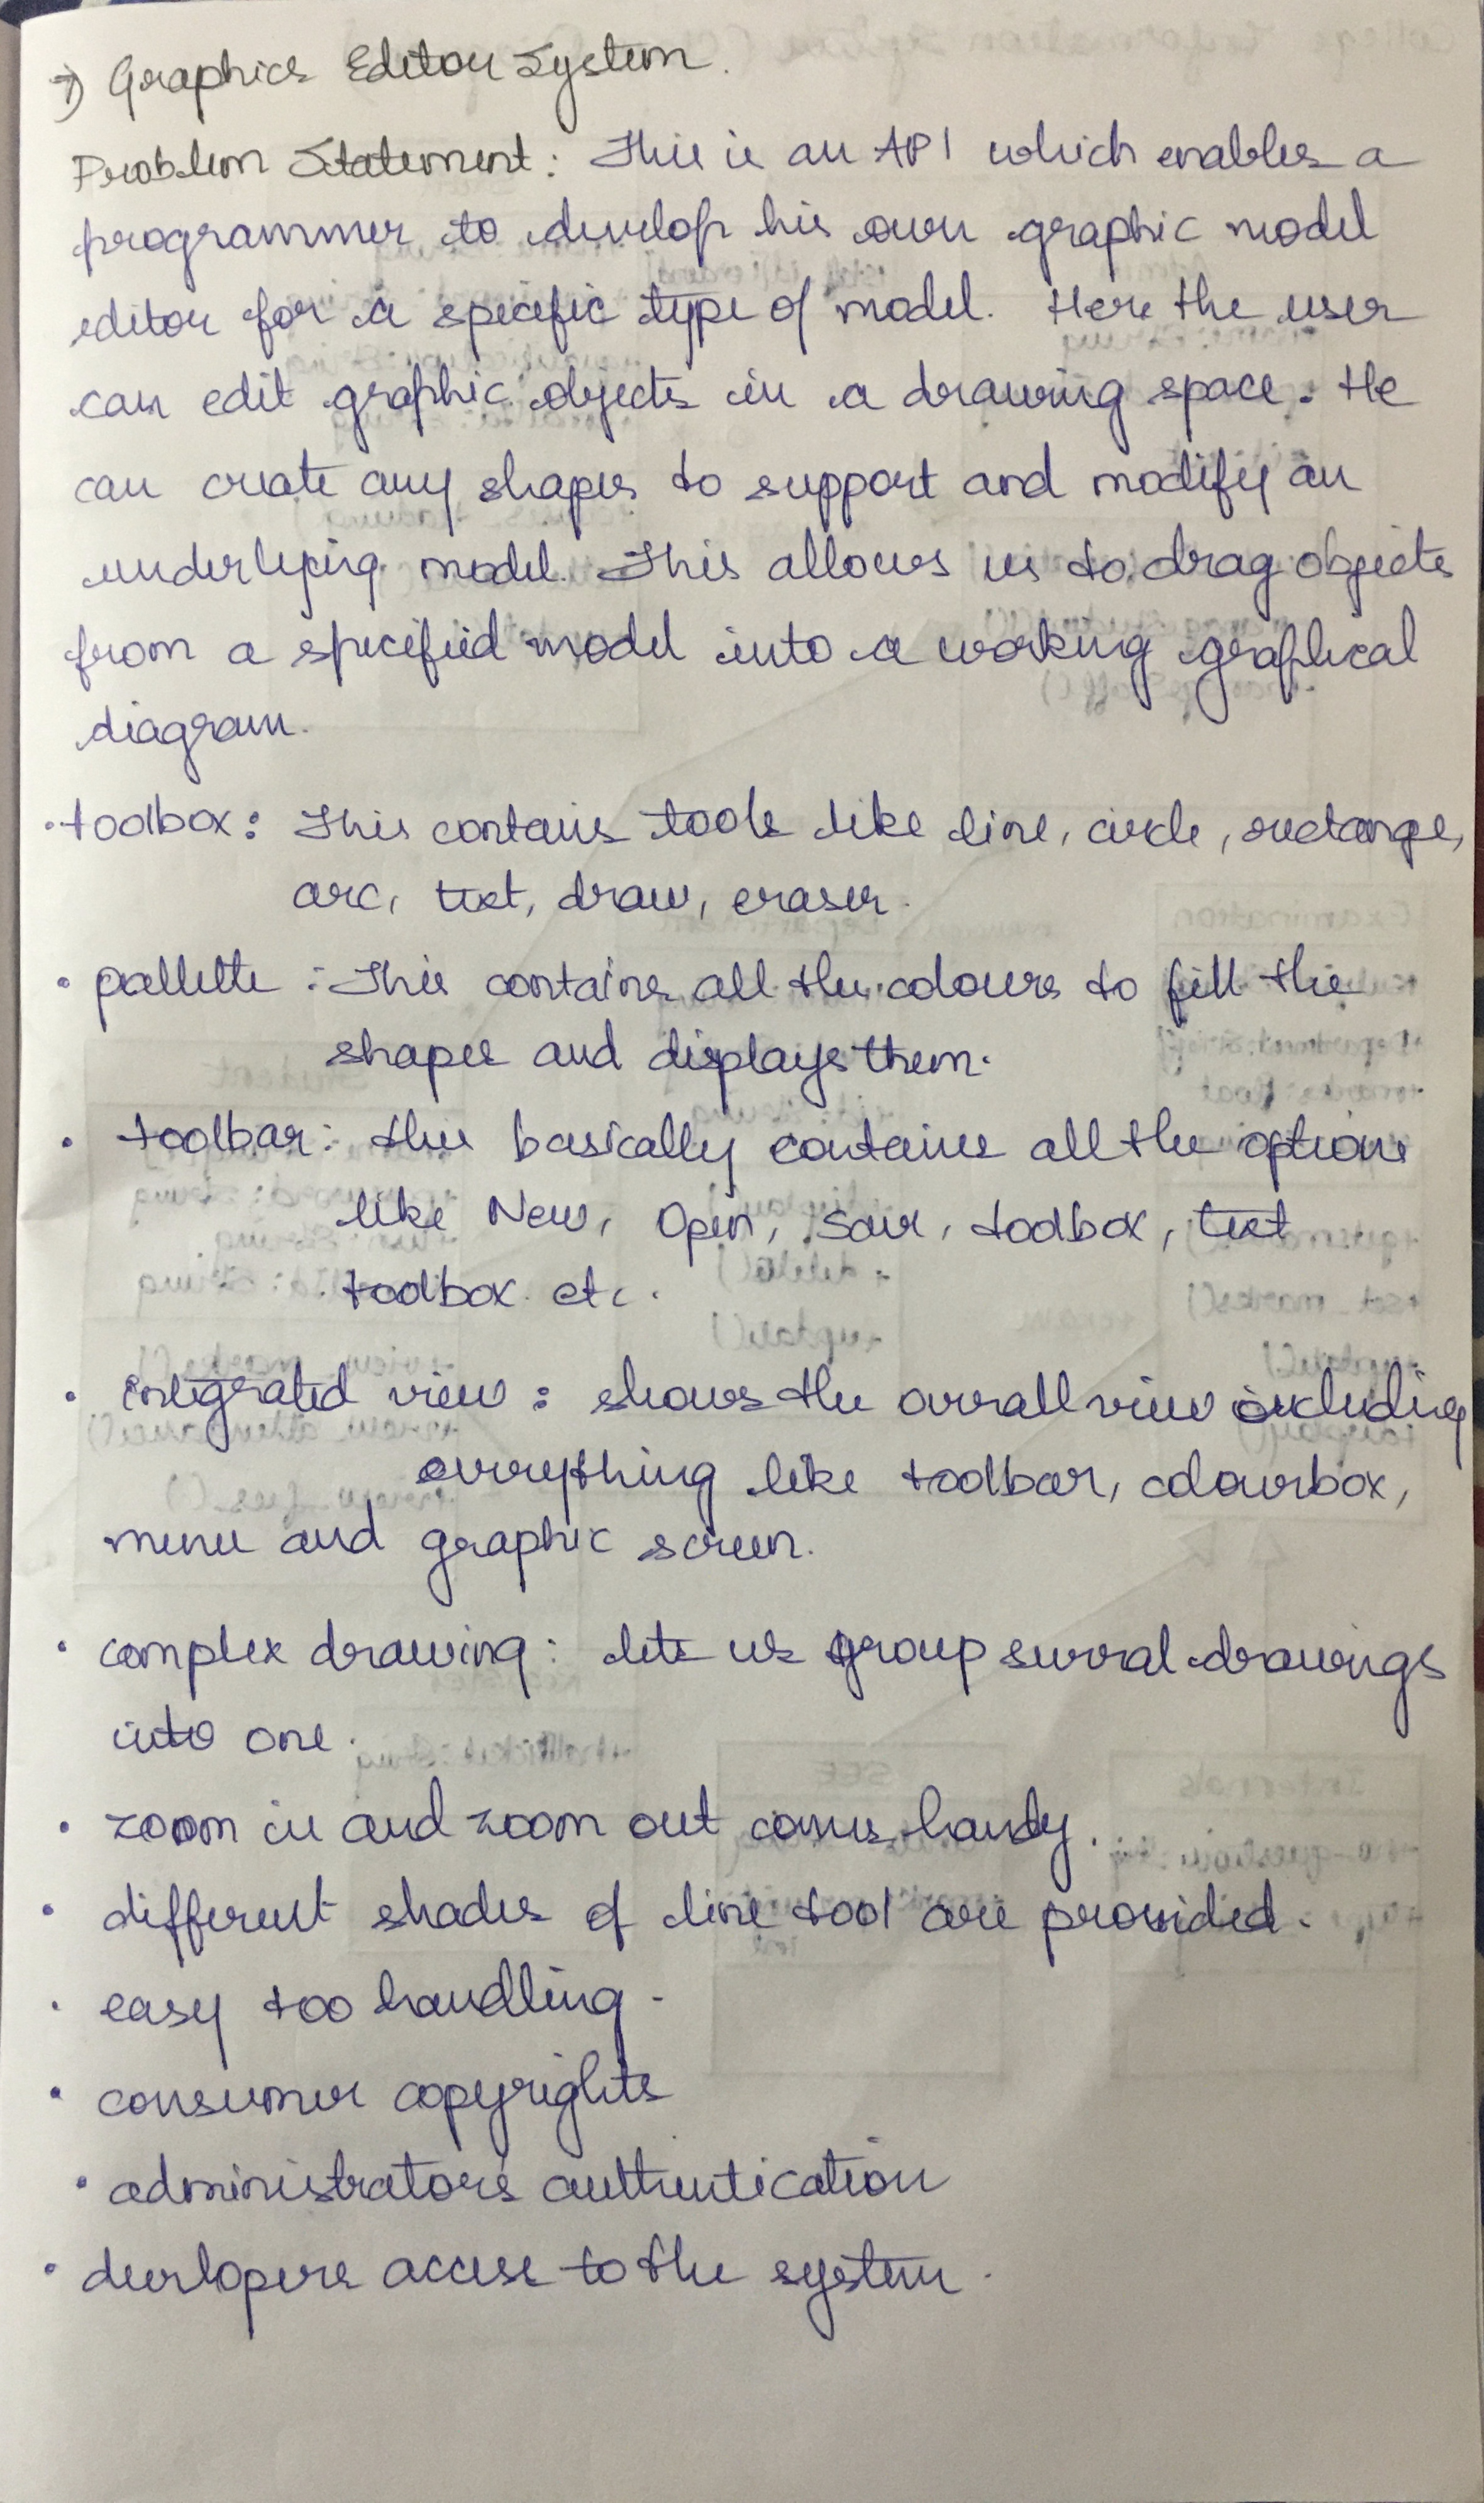 7) Graphics Editor System.
Problem Statement: This is an API which enables a
programmer to develop his own graphic model
editor for a specific type of model. Here the user
can edit graphic objects in a drawing space. He
can create any shapes to support and modify an
underlying model. This allows us to drag objects
from a specified model into a working graphical
diagram.
· toolbox: This contains tools like line, circle, rectange,
arc, text, draw, eraser.
· pallette : This contains all the colours to fill the
shapes and displays them.
· toolbar: this basically contains all the options
like New, Open, Save, toolbox, text
toolbox etc.
· integrated view : shows the overall view including
everything like toolbar, colourbox,
menu and graphic screen.
· complex drawing: lets us group several drawings
into one.
· zoom in and zoom out comes handy.
· different shades of line tool are provided.
· easy too handling.
· consumer copyrights
· administrators authentication
· developers access to the system.